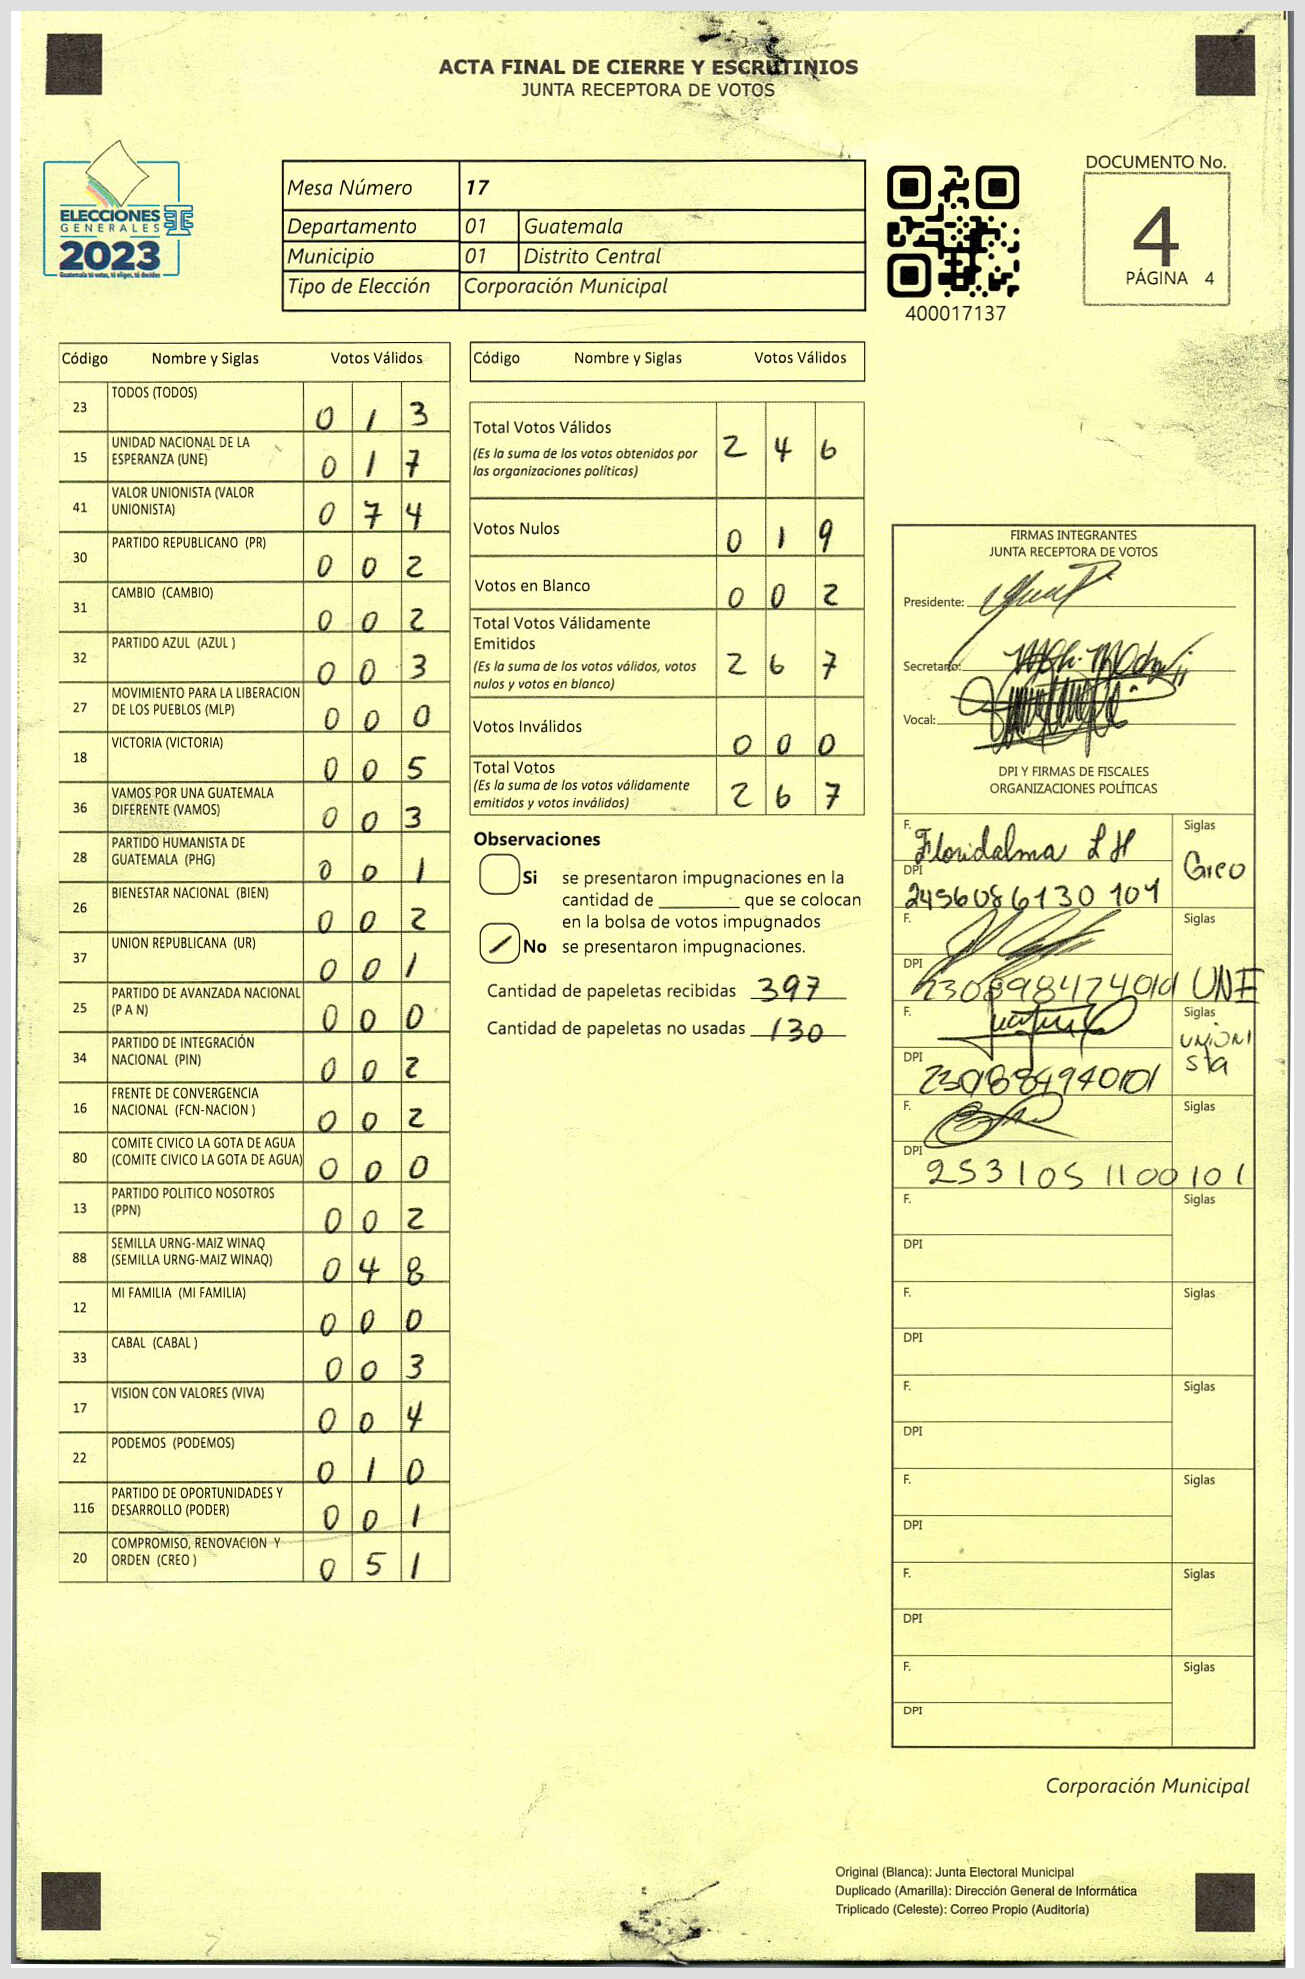 ACTA FINAL DE CIERRE Y ESCRUTINIOS
JUNTA RECEPTORA DE VOTOS
ELECCIONES
GENERALES
2023
Guatemala tú votas, tú eliges, tú decides
Mesa Número 17
Departamento 01 Guatemala
Municipio 01 Distrito Central
Tipo de Elección Corporación Municipal
400017137
DOCUMENTO No.
4
PÁGINA 4
Código Nombre y Siglas Votos Válidos
23 TODOS (TODOS) 0 1 3
15 UNIDAD NACIONAL DE LA
ESPERANZA (UNE) 0 1 7
41 VALOR UNIONISTA (VALOR
UNIONISTA) 0 7 4
30 PARTIDO REPUBLICANO (PR) 0 0 2
31 CAMBIO (CAMBIO) 0 0 2
32 PARTIDO AZUL (AZUL ) 0 0 3
27 MOVIMIENTO PARA LA LIBERACION
DE LOS PUEBLOS (MLP) 0 0 0
18 VICTORIA (VICTORIA) 0 0 5
36 VAMOS POR UNA GUATEMALA
DIFERENTE (VAMOS) 0 0 3
28 PARTIDO HUMANISTA DE
GUATEMALA (PHG) 0 0 1
26 BIENESTAR NACIONAL (BIEN) 0 0 2
37 UNION REPUBLICANA (UR) 0 0 1
25 PARTIDO DE AVANZADA NACIONAL
(P A N) 0 0 0
34 PARTIDO DE INTEGRACIÓN
NACIONAL (PIN) 0 0 2
16 FRENTE DE CONVERGENCIA
NACIONAL (FCN-NACION ) 0 0 2
80 COMITE CIVICO LA GOTA DE AGUA
(COMITE CIVICO LA GOTA DE AGUA) 0 0 0
13 PARTIDO POLITICO NOSOTROS
(PPN) 0 0 2
88 SEMILLA URNG-MAIZ WINAQ
(SEMILLA URNG-MAIZ WINAQ) 0 4 8
12 MI FAMILIA (MI FAMILIA) 0 0 0
33 CABAL (CABAL ) 0 0 3
17 VISION CON VALORES (VIVA) 0 0 4
22 PODEMOS (PODEMOS) 0 1 0
116 PARTIDO DE OPORTUNIDADES Y
DESARROLLO (PODER) 0 0 1
20 COMPROMISO, RENOVACION Y
ORDEN (CREO ) 0 5 1
Código Nombre y Siglas Votos Válidos
Total Votos Válidos 2 4 6
(Es la suma de los votos obtenidos por
las organizaciones políticas)
Votos Nulos 0 1 9
Votos en Blanco 0 0 2
Total Votos Válidamente
Emitidos 2 6 7
(Es la suma de los votos válidos, votos
nulos y votos en blanco)
Votos Inválidos 0 0 0
Total Votos 2 6 7
(Es la suma de los votos válidamente
emitidos y votos inválidos)
Observaciones
Si se presentaron impugnaciones en la
cantidad de ________ que se colocan
en la bolsa de votos impugnados
No se presentaron impugnaciones.
Cantidad de papeletas recibidas 397
Cantidad de papeletas no usadas 130
FIRMAS INTEGRANTES
JUNTA RECEPTORA DE VOTOS
Presidente:
Secretario:
Vocal:
DPI Y FIRMAS DE FISCALES
ORGANIZACIONES POLÍTICAS
F. Floridalma L H Siglas
DPI 2456086130 101
F. Siglas UNE
DPI
F. Siglas
UNIONI
sta
DPI
F. Siglas
DPI 2531051100101
F. Siglas
DPI
F. Siglas
DPI
F. Siglas
DPI
F. Siglas
DPI
F. Siglas
DPI
F. Siglas
DPI
Corporación Municipal
Original (Blanca): Junta Electoral Municipal
Duplicado (Amarilla): Dirección General de Informática
Triplicado (Celeste): Correo Propio (Auditoría)